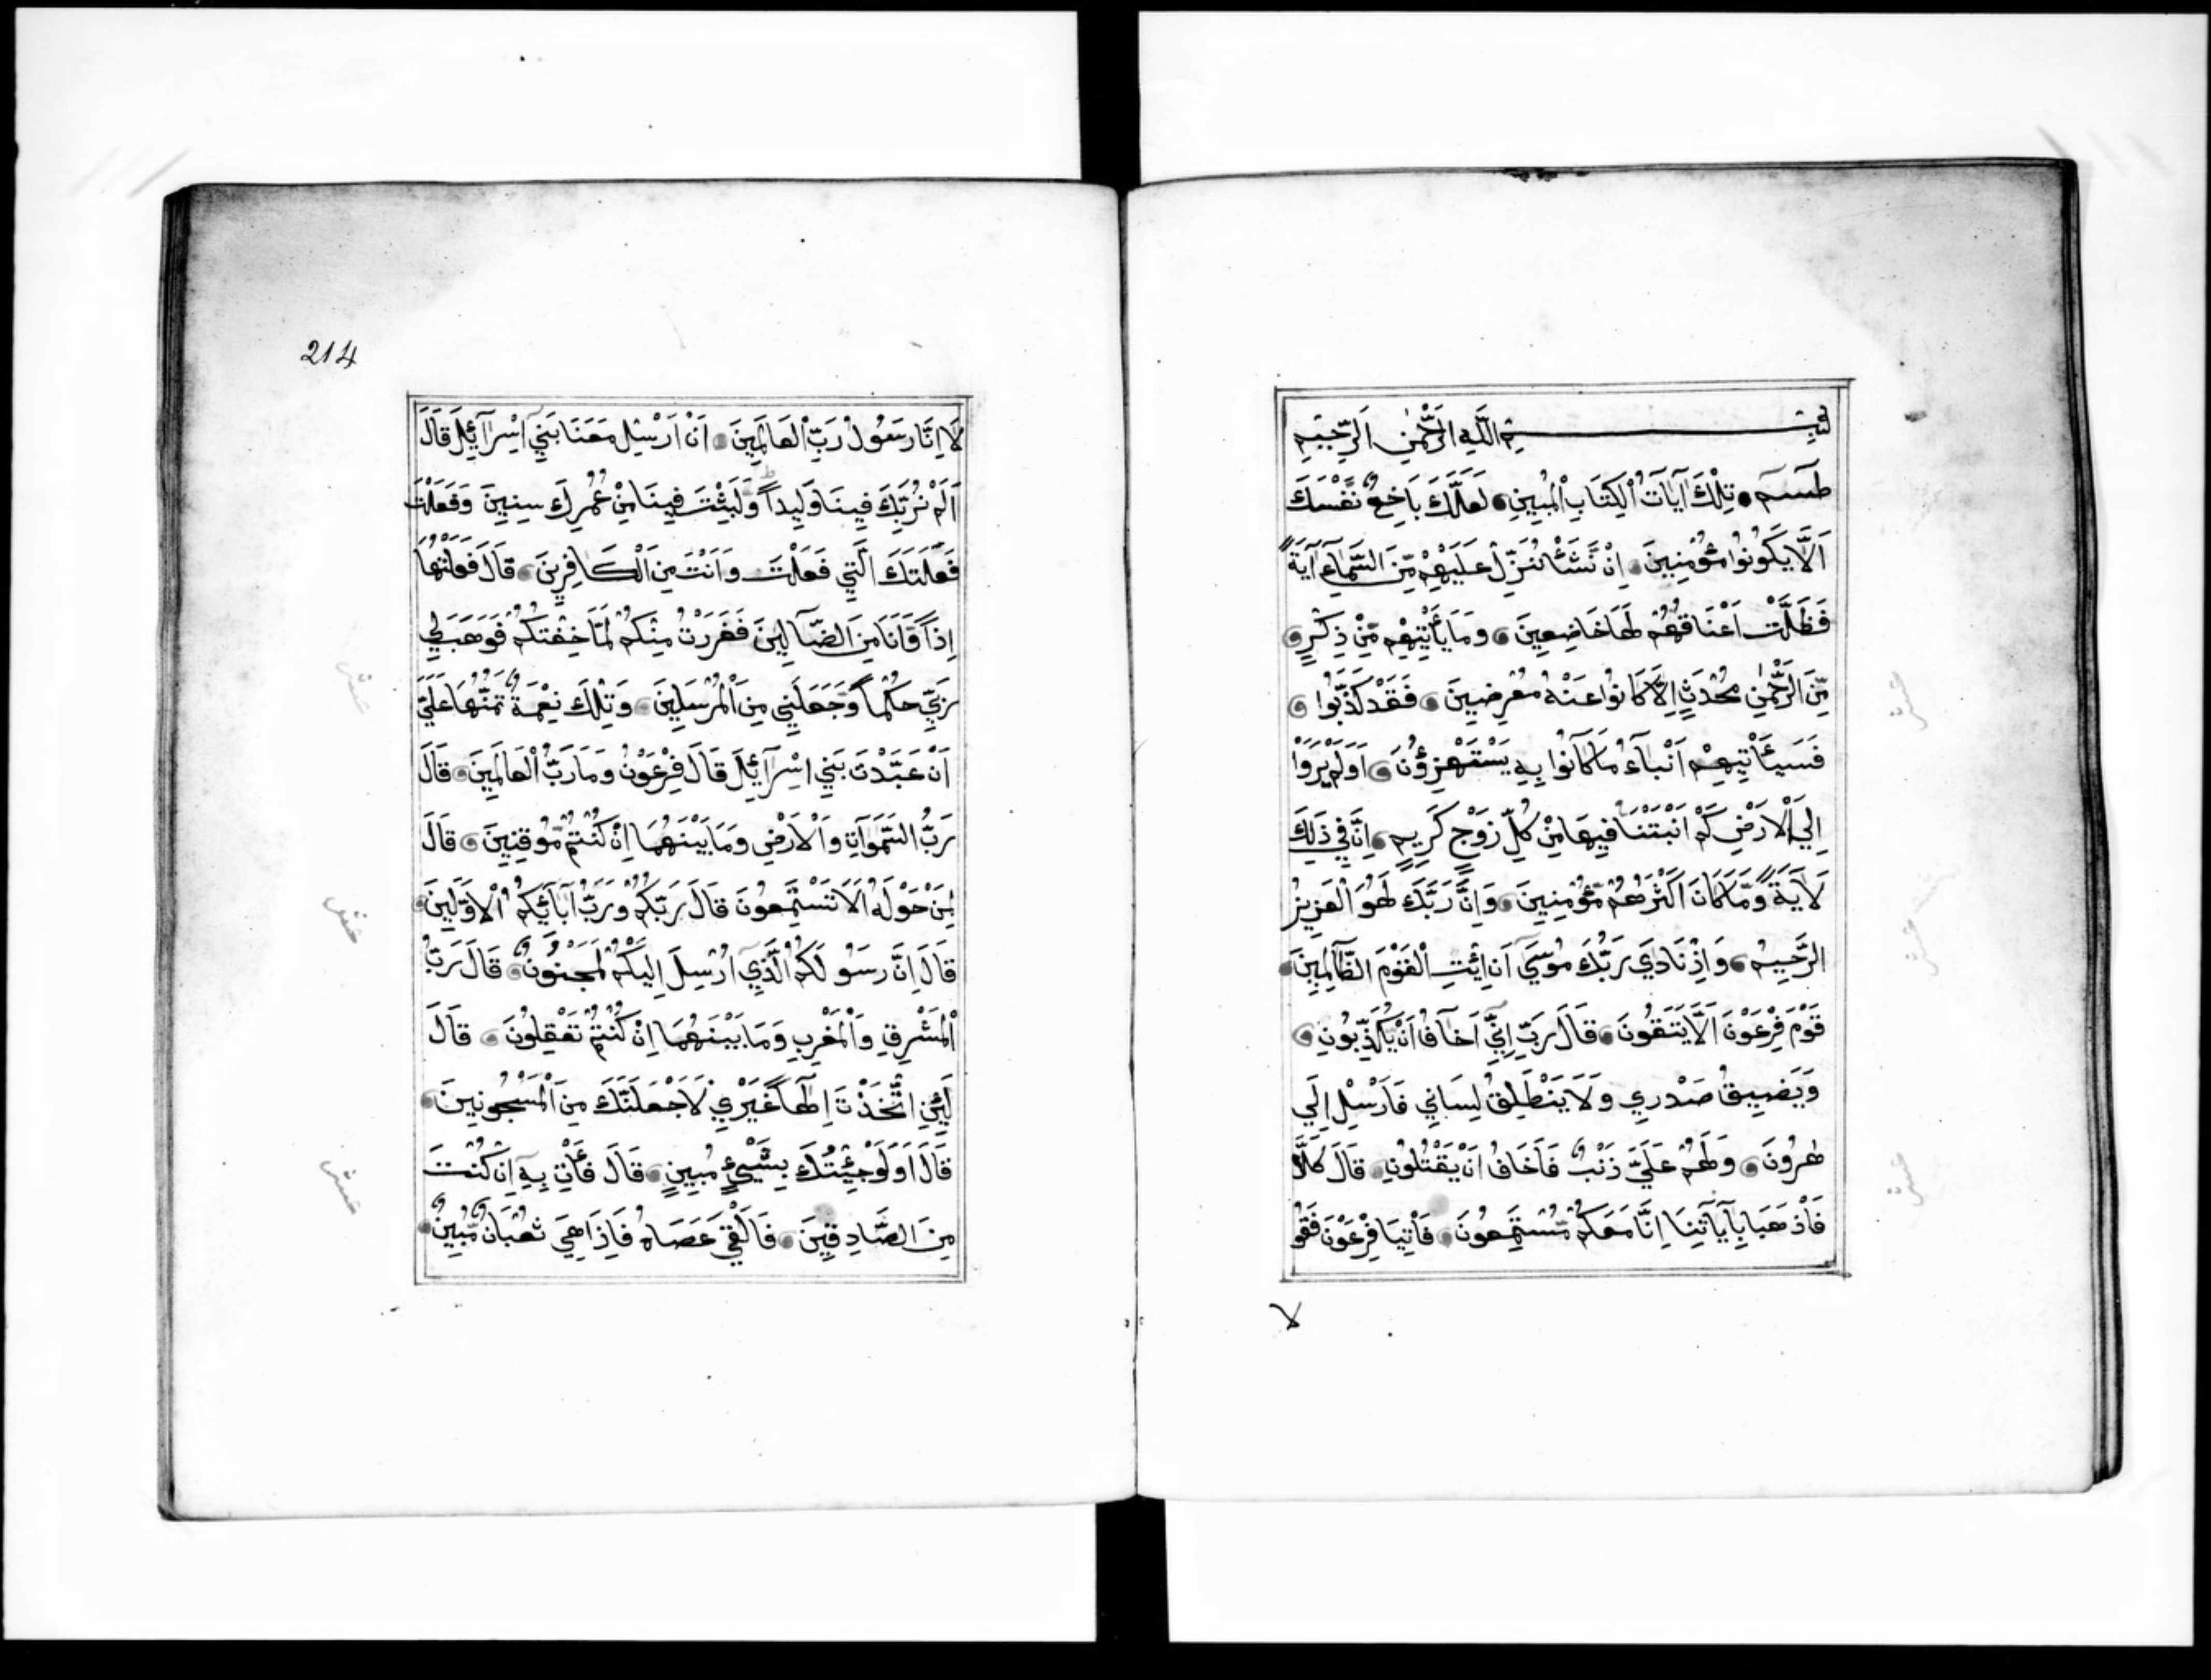 بِسْمِ اللَّهِ الرَّحْمٰنِ الرَّحِيمِ
طٓسٓمٓ تِلْكَ آيَاتُ الْكِتَابِ الْمُبِينِ لَعَلَّكَ بَاخِعٌ نَّفْسَكَ
اَلَّا يَكُونُوا مُؤْمِنِينَ اِنْ نَّشَأْ نُنَزِّلْ عَلَيْهِمْ مِّنَ السَّمَآءِ آيَةً
فَظَلَّتْ اَعْنَاقُهُمْ لَهَا خَاضِعِينَ وَمَا يَأْتِيْهِمْ مِّنْ ذِكْرٍ
مِّنَ الرَّحْمٰنِ مُحْدَثٍ اِلَّا كَانُوْا عَنْهُ مُعْرِضِينَ فَقَدْ كَذَّبُوا
فَسَيَأْتِيهِمْ اَنْبَآءُ مَا كَانُوا بِهِ يَسْتَهْزِؤُنَ اَوَلَمْ يَرَوْا
اِلَي الْاَرْضِ كَمْ اَنْبَتْنَا فِيهَا مِنْ كُلِّ زَوْجٍ كَرِيمٍ اِنَّ فِي ذَلِكَ
لَاَيَةً وَّمَا كَانَ اَكْثَرُهُمْ مُّؤْمِنِينَ وَاِنَّ رَبَّكَ لَهُوَ الْعَزِيزُ
الرَّحِيمُ وَاِذْ نَادَي رَبُّكَ مُوسَي اَنِ ائْتِ الْقَوْمَ الظَّالِمِينَ
قَوْمَ فِرْعَوْنَ اَلَا يَتَّقُونَ قَالَ رَبِّ اِنِّي اَخَافُ اَنْ يُّكَذِّبُونِ
وَيَضِيقُ صَدْرِي وَلَا يَنْطَلِقُ لِسَانِي فَاَرْسِلْ اِلَي
هٰرُونَ وَلَهُمْ عَلَيَّ ذَنْبٌ فَاَخَافُ اَنْ يَقْتُلُونِ قَالَ كَلَّا
فَاذْهَبَا بِآيَاتِنَا اِنَّا مَعَكُمْ مُّسْتَمِعُونَ فَاْتِيَا فِرْعَوْنَ فَقُو
لا
عشر
عشر
عشر
214
لَا اِنَّا رَسُوْلُ رَبِّ الْعَالَمِينَ اَنْ اَرْسِلْ مَعَنَا بَنِي اِسْرَآئِيلَ قَالَ
اَلَمْ نُرَبِّكَ فِينَا وَلِيداً وَّلَبِثْتَ فِينَا مِنْ عُمُرِكَ سِنِينَ وَفَعَلْتَ
فَعْلَتَكَ الَّتِي فَعَلْتَ وَاَنْتَ مِنَ الْكَافِرِينَ قَالَ فَعَلْتُهَا
اِذاً وَّاَنَا مِنَ الضَّآلِّينَ فَفَرَرْتُ مِنْكُمْ لَمَّا خِفْتُكُمْ فَوَهَبَ لِي
رَبِّي حُكْماً وَّجَعَلَنِي مِنَ الْمُرْسَلِينَ وَتِلْكَ نِعْمَةٌ تَمُنُّهَا عَلَيَّ
اَنْ عَبَّدْتَ بَنِي اِسْرَآئِيلَ قَالَ فِرْعَوْنُ وَمَا رَبُّ الْعَالَمِينَ قَالَ
رَبُّ السَّمَوَاتِ وَالْاَرْضِ وَمَا بَيْنَهُمَا اِنْ كُنْتُمْ مُّوقِنِينَ قَالَ
لِمَنْ حَوْلَهُ اَلَا تَسْتَمِعُونَ قَالَ رَبُّكُمْ وَرَبُّ آبَآئِكُمُ الْاَوَّلِينَ
قَالَ اِنَّ رَسُولَكُمُ الَّذِي اُرْسِلَ اِلَيْكُمْ لَمَجْنُونٌ قَالَ رَبُّ
الْمَشْرِقِ وَالْمَغْرِبِ وَمَا بَيْنَهُمَا اِنْ كُنْتُمْ تَعْقِلُونَ قَالَ
لَئِنِ اتَّخَذْتَ اِلٰهاً غَيْرِي لَاَجْعَلَنَّكَ مِنَ الْمَسْجُونِينَ
قَالَ اَوَلَوْ جِئْتُكَ بِشَيْءٍ مُّبِينٍ قَالَ فَأْتِ بِهِ اِنْ كُنْتَ
مِنَ الصَّادِقِينَ فَاَلْقَي عَصَاهُ فَاِذَا هِيَ ثُعْبَانٌ مُّبِينٌ
عشر
عشر
عشر